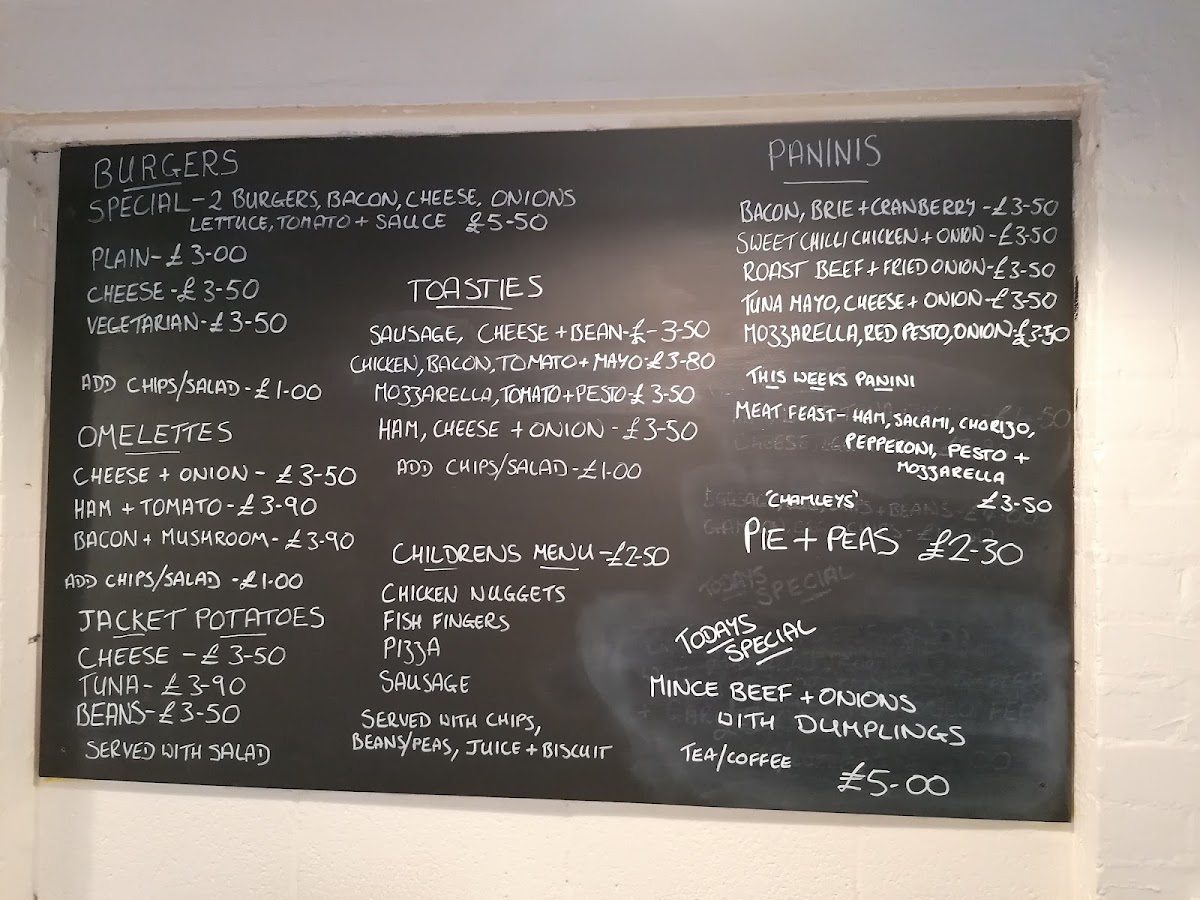 BURGERS
SPECIAL-2 BURGERS, BACON, CHEESE, ONIONS
LETTUCE, TOMATO + SAUCE £5-50
PLAIN-£3-00
CHEESE-£3-50
VEGETARIAN-£3-50
ADD CHIPS/SALAD-£1-00
OMELETTES
CHEESE + ONION - £3-50
HAM + TOMATO-£3-90
BACON + MUSHROOM-£3-90
ADD CHIPS/SALAD -£1-00
JACKET POTATOES
CHEESE -£3-50
TUNA-£3-90
BEANS-£3-50
SERVED WITH SALAD
TOASTIES
SAUSAGE, CHEESE + BEAN-£-3-50
CHICKEN, BACON, TOMATO + MAYO-£3-80
MOZZARELLA, TOMATO + PESTO-£3-50
HAM, CHEESE + ONION -£3-50
ADD CHIPS/SALAD-£1-00
CHILDRENS MENU-£2-50
CHICKEN NUGGETS
FISH FINGERS
PIZZA
SAUSAGE
SERVED WITH CHIPS,
BEANS/PEAS, JUICE + BISCUIT
PANINIS
BACON, BRIE + CRANBERRY -£3-50
SWEET CHILLI CHICKEN + ONION -£3-50
ROAST BEEF + FRIED ONION-£3-50
TUNA MAYO, CHEESE + ONION -£3-50
MOZZARELLA, RED PESTO, ONION-£3-50
THIS WEEKS PANINI
MEAT FEAST- HAM, SALAMI, CHORIZO,
PEPPERONI, PESTO +
MOZZARELLA
£3-50
'CHAMLEYS'
PIE + PEAS £2-30
TODAYS
SPECIAL
TODAYS
SPECIAL
MINCE BEEF + ONIONS
WITH DUMPLINGS
TEA/COFFEE
£5-00